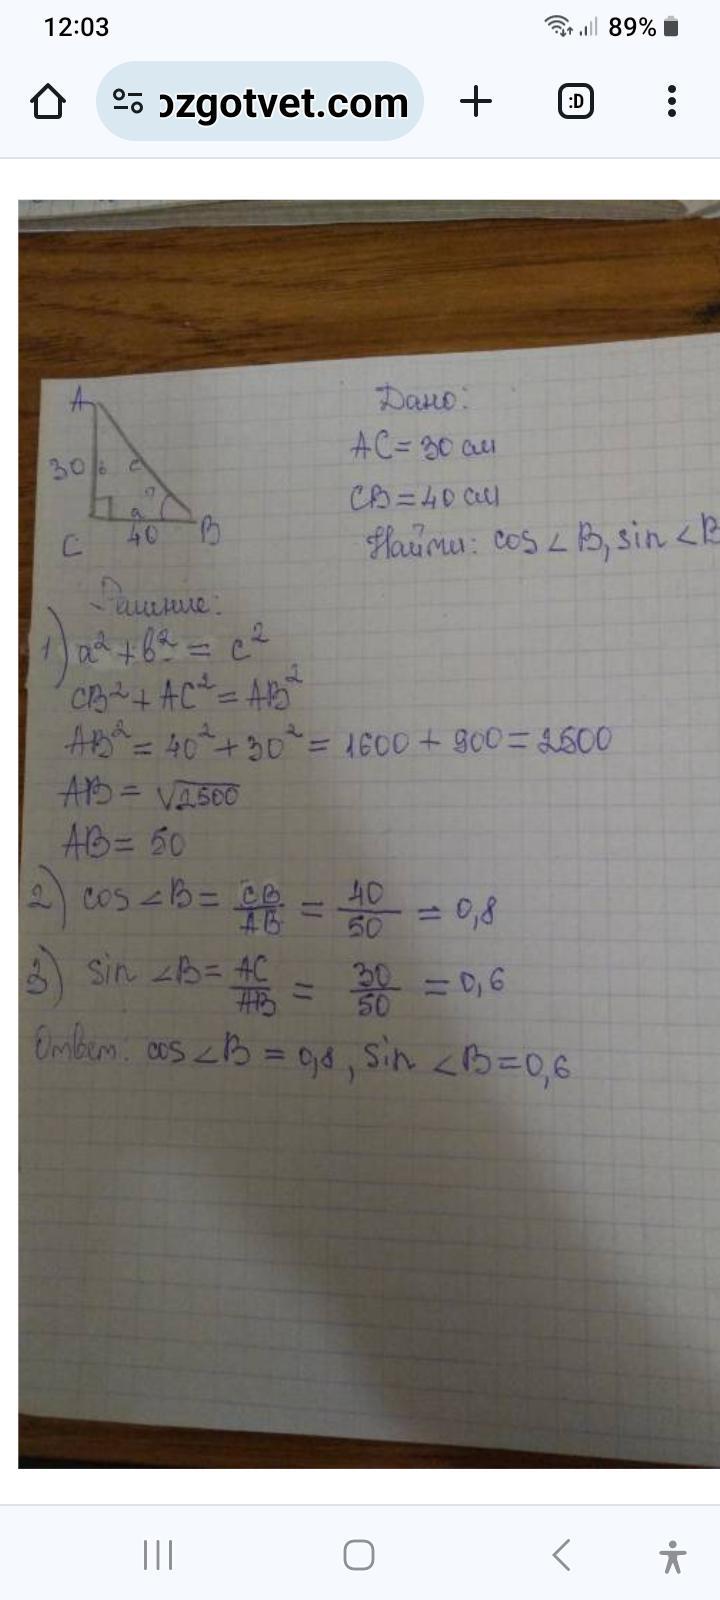 12:03
89%
ozgotvet.com
:D
A
Дано:
30 в c
AC = 30 см
?
a
CB = 40 см
C 40 B
Найти: cos ∠B, sin ∠B
Решение:
1) a² + b² = c²
CB² + AC² = AB²
AB² = 40² + 30² = 1600 + 900 = 2500
AB = √2500
AB = 50
2) cos ∠B = CB/AB = 40/50 = 0,8
3) sin ∠B = AC/AB = 30/50 = 0,6
Ответ: cos ∠B = 0,8, sin ∠B = 0,6